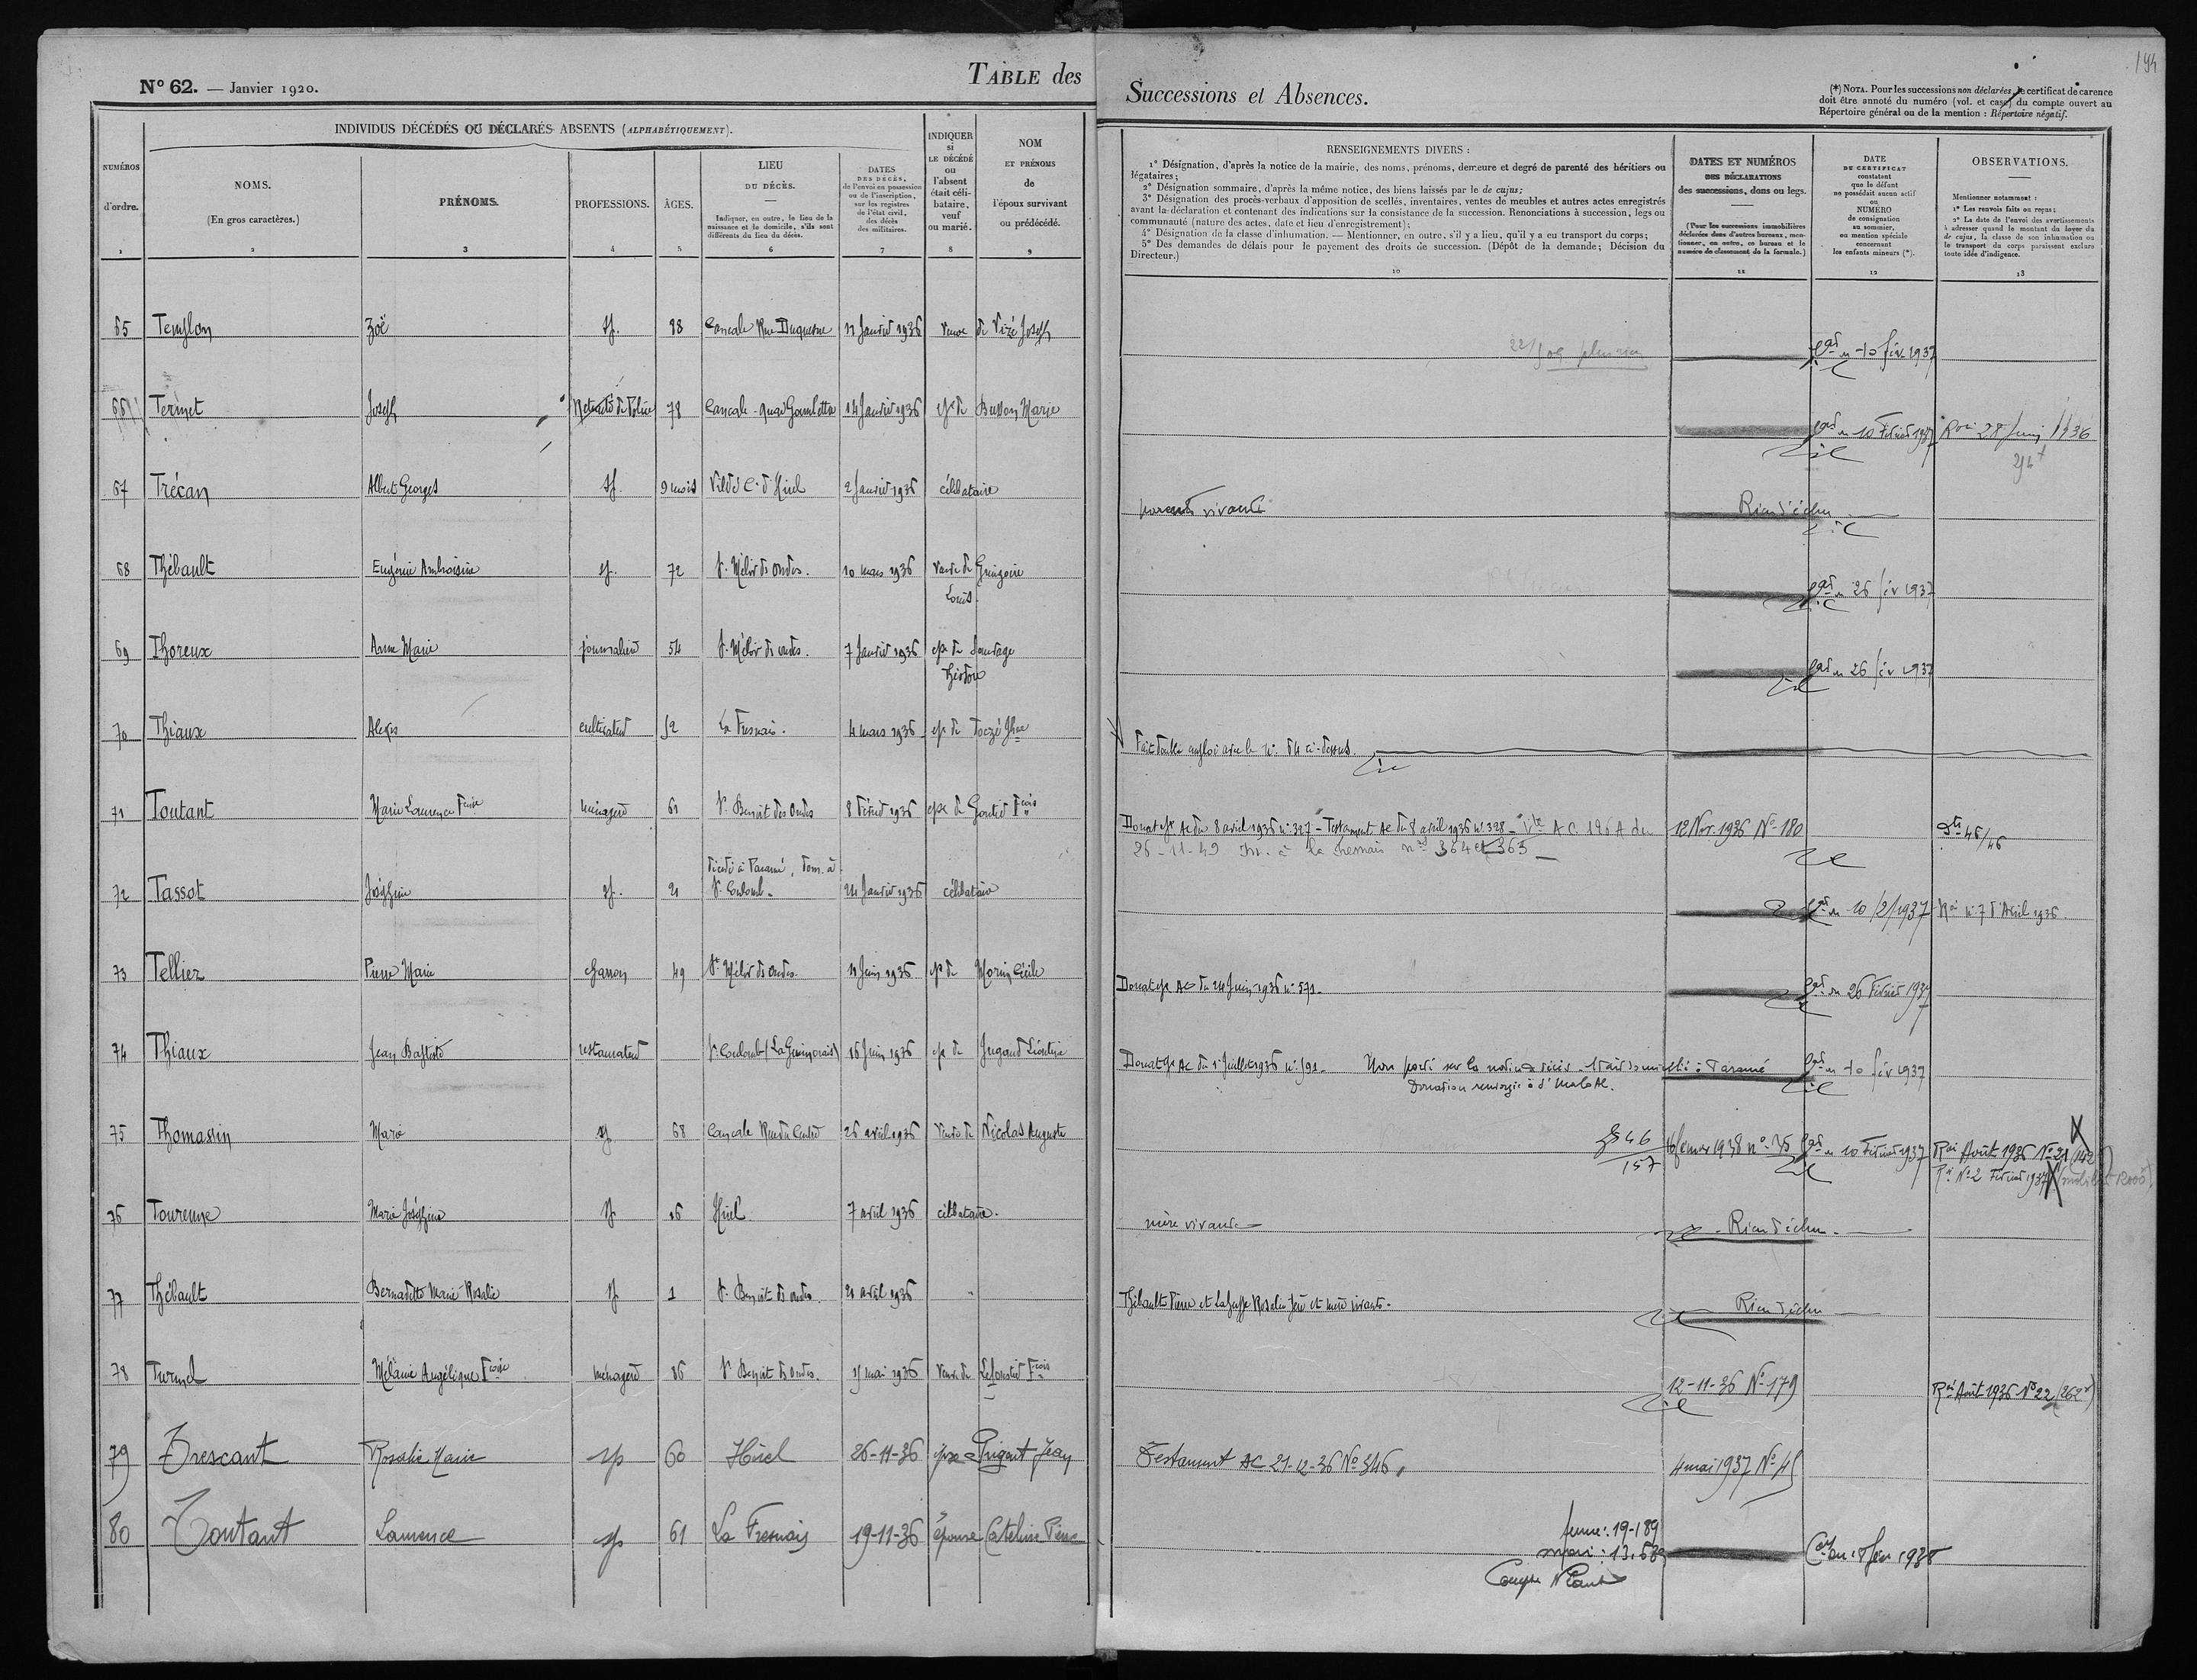 194
N° 62. — Janvier 1920.
TABLE des
Successions et Absences.
(*) NOTA. Pour les successions non déclarées, le certificat de carence
doit être annoté du numéro (vol. et case) du compte ouvert au
Répertoire général ou de la mention : Répertoire négatif.
INDIVIDUS DÉCÉDÉS OU DÉCLARÉS ABSENTS (ALPHABÉTIQUEMENT).
NUMÉROS
d'ordre.
1
NOMS.
(En gros caractères.)
2
PRÉNOMS.
3
PROFESSIONS.
4
ÂGES.
5
LIEU
DU DÉCÈS.
Indiquer, en outre, le lieu de la
naissance et le domicile, s'ils sont
différents du lieu du décès.
6
DATES
DES DÉCÈS,
de l'envoi en possession
ou de l'inscription,
sur les registres
de l'état civil,
des décès
des militaires.
7
INDIQUER
si
LE DÉCÉDÉ
ou
l'absent
était céli-
bataire,
veuf
ou marié.
8
NOM
ET PRÉNOMS
de
l'époux survivant
ou prédécédé.
9
RENSEIGNEMENTS DIVERS :
1° Désignation, d'après la notice de la mairie, des noms, prénoms, demeure et degré de parenté des héritiers ou
légataires;
2° Désignation sommaire, d'après la même notice, des biens laissés par le de cujus;
3° Désignation des procès-verbaux d'apposition de scellés, inventaires, ventes de meubles et autres actes enregistrés
avant la déclaration et contenant des indications sur la consistance de la succession. Renonciations à succession, legs ou
communauté (nature des actes, date et lieu d'enregistrement);
4° Désignation de la classe d'inhumation. — Mentionner, en outre, s'il y a lieu, qu'il y a eu transport du corps;
5° Des demandes de délais pour le payement des droits de succession. (Dépôt de la demande; Décision du
Directeur.)
10
DATES ET NUMÉROS
DES DÉCLARATIONS
des successions, dons ou legs.
(Pour les successions immobilières
déclarées dans d'autres bureaux, men-
tionner, en outre, ce bureau et le
numéro de classement de la formule.)
11
DATE
DU CERTIFICAT
constatant
que le défunt
ne possédait aucun actif
ou
NUMÉRO
de consignation
au sommier,
ou mention spéciale
concernant
les enfants mineurs (*).
12
OBSERVATIONS.
Mentionner notamment :
1° Les renvois faits ou reçus;
2° La date de l'envoi des avertissements
à adresser quand le montant du loyer du
de cujus, la classe de son inhumation ou
le transport du corps paraissent exclure
toute idée d'indigence.
13
65 Templon Zoë sp. 88 Cancale Rue Duquesne 11 Janvier 1936 veuve de Vizé Joseph
du 10 fév. 1937
66 Termet Joseph Retraité de Police 78 Cancale - quai Gambetta 14 Janvier 1936 ép. de Busson Marie
du 10 Février 1937 28 Juin 1936
67 Trécan Albert Georges sp. 9 mois Hirel 2 Janvier 1936 célibataire
parents vivants Rien d'échu
68 Thébault Eugénie Ambroisine sp. 72 St. Méloir des Ondes. 10 mars 1936 veuve de Guingoire
Louis.
du 26 fév 1937
69 Thoreux Anne Marie journalière 54 St. Méloir des ondes. 7 Janvier 1936 épse de Sauvage
Théodore
du 26 fév 1937
70 Thiaux Alexis cultivateur 52 La Fresnais. 4 mars 1936 ép. de
Fait double emploi avec le n°. 64 ci-dessus.
71 Toutant Marie Laurence Fcoise ménagère 61 St. Benoit des Ondes 8 Février 1936 epse de Gautier Fcois
Donat. Ac du 8 avril 1936 n° 327 - Testament Ac du 8 avril 1936 n° 328 - AC. 196 A du 12 Nov. 1936 N° 180
26-11-49 à la Fresnais nos 364 et 363 46/46
72 Tassot Joséphine sp. 21 décédée à Paramé, dom. à
St. Coulomb. 24 Janvier 1936 célibataire
du 10/2/1937 n° 7 d'Avril 1936.
73 Tellier Pierre Marie charron 49 St. Méloir des Ondes. 11 Juin 1936 ép. de Morin Cécile
Donat. Ac du 24 Juin 1936 n° 571. du 26 Février 1937
74 Thiaux Jean Baptiste restaurateur St. Coulomb (La Guimorais) 16 Juin 1936 ép. de Jugand Léontine
Donat. AC du 1er Juillet 1936 n° 591. Non porté sur la notice décès. était domicilié à Paramé du 10 fév 1937
Donation renvoyée à St Malo AC.
75 Thomassin Marie sp 68 Cancale Rue du Centre 26 avril 1936 veuve de Nicolas Auguste
46
157 16 février 1938 n° 35 du 10 Février 1937 Août 1936 N° 21
N° 2 Février 1937
76 Tourenne Marie Joséphine sp 16 Hirel 7 avril 1936 célibataire.
mère vivante Rien d'échu.
77 Thébault Bernadette Marie Rosalie sp 1 St. Benoit des ondes. 21 avril 1936
Thébault Pierre et Rosalie père et mère vivants. Rien d'échu
78 Turmel Mélanie Angélique Fcoise ménagère 86 St. Benoit des Ondes. 15 mai 1936 veuve de Fcois
12-11-36 N° 179 Août 1936 N° 22
79 Trescant Rosalie Marie sp 60 Hirel 26-11-36 épse Prigent Jean
Testament AC 21-12-36 N° 346. 4 mai 1937 N° 45
80 Toutant Laurence sp 61 La Fresnais 19-11-36 épouse Cateline Pierre
femme : 19-189
mari : 13.539
Compte Néant
1938